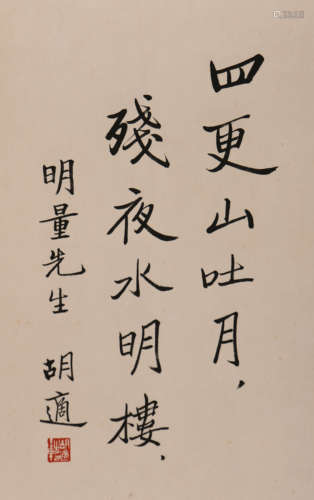 四更山吐月，
殘夜水明樓，
明量先生 胡適